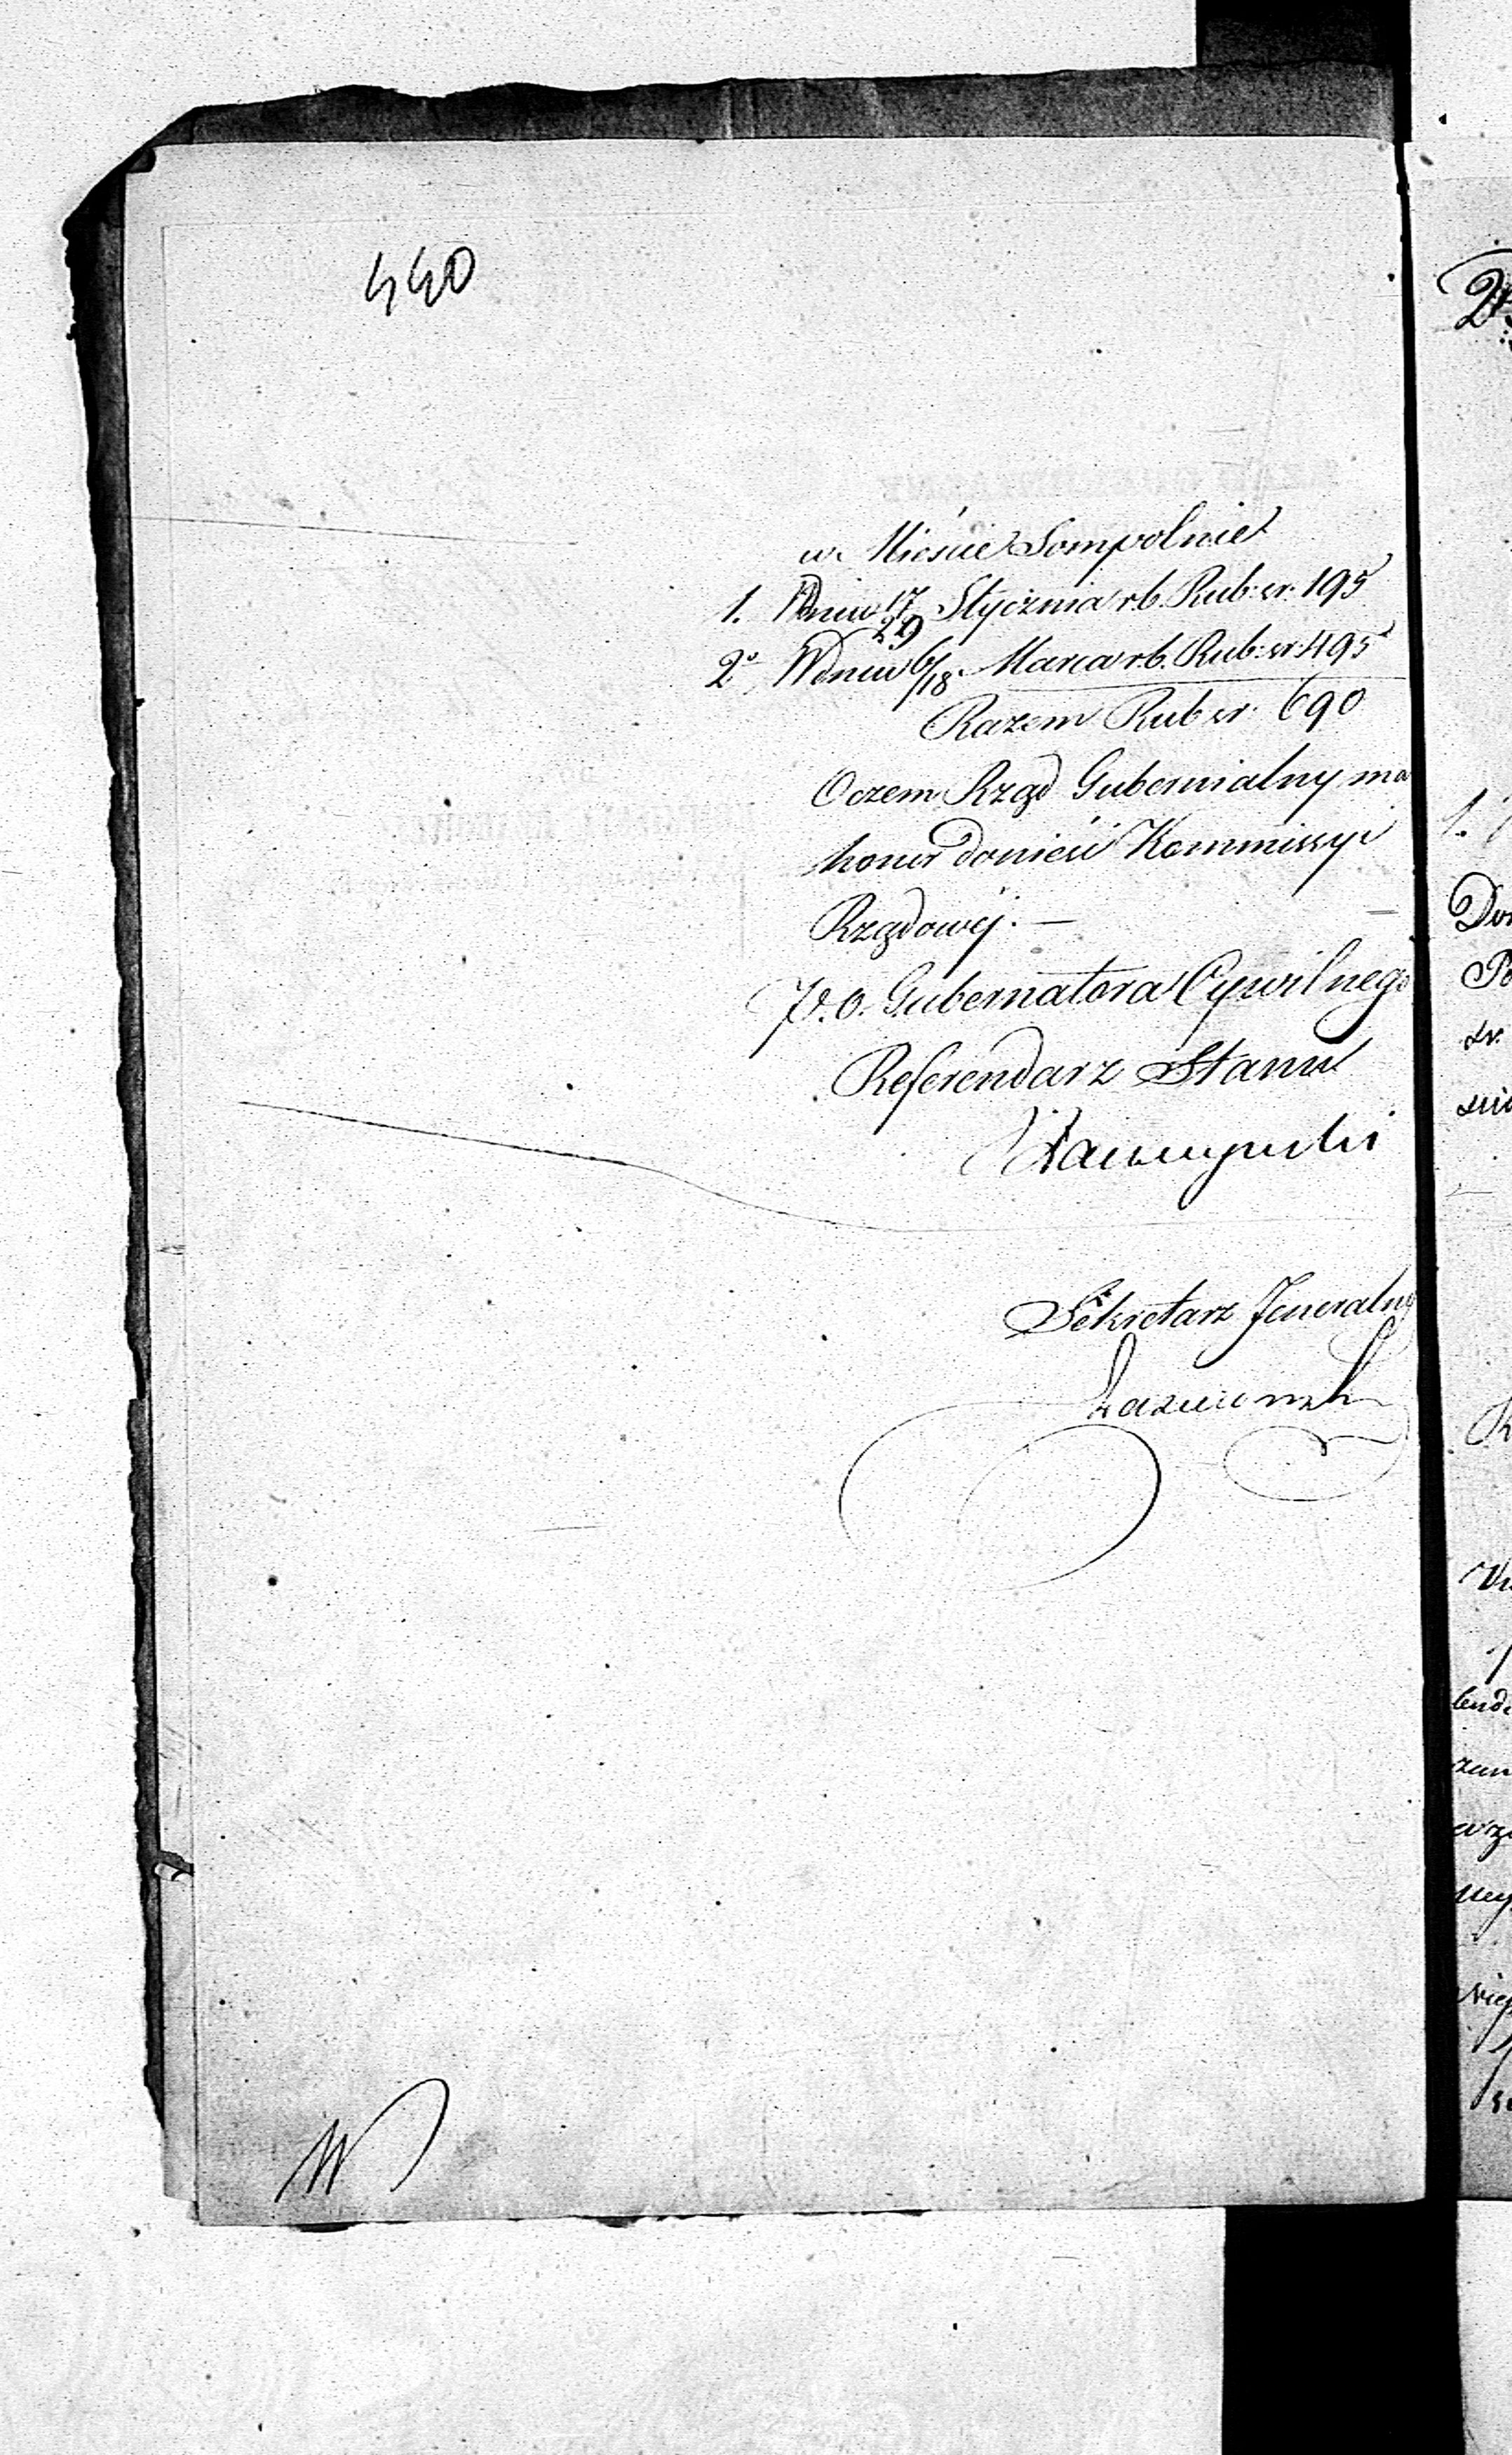 440
w Mieście Sompolnie
1. W dniu 17/29 Stycznia r.b. Rub: sr. 195
2° W dniu 6/18 Marca r.b. Rub: sr. 495
Razem Rub sr. 690
O czem Rząd Gubernialny ma
honor donieść Kommissyi
Rządowéj. —
P.O. Gubernatora Cywilnego
Referendarz Stanu
Sekretarz Jeneralny